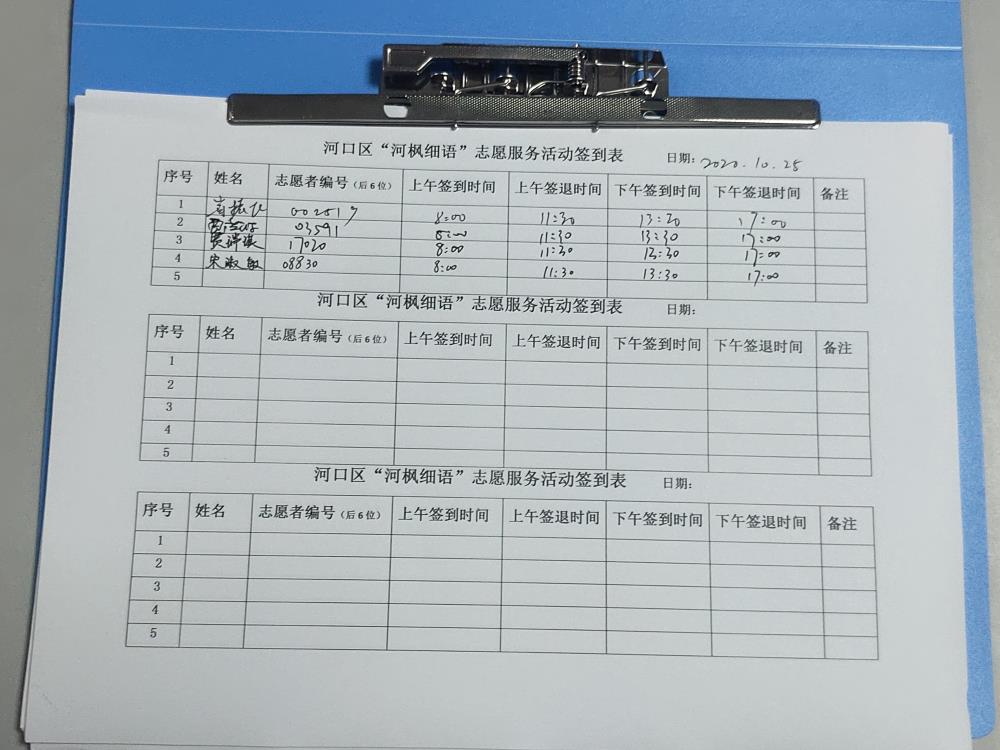 河口区“河枫细语”志愿服务活动签到表 日期: 2020.10.25
序号 姓名 志愿者编号（后6位） 上午签到时间 上午签退时间 下午签到时间 下午签退时间 备注
1 002517 8:00 11:30 13:30 17:00
2 03591 8:00 11:30 13:30 17:00
3 17020 8:00 11:30 13:30 17:00
4 宋淑敏 08830 8:00 11:30 13:30 17:00
5
河口区“河枫细语”志愿服务活动签到表 日期:
序号 姓名 志愿者编号（后6位） 上午签到时间 上午签退时间 下午签到时间 下午签退时间 备注
1
2
3
4
5
河口区“河枫细语”志愿服务活动签到表 日期:
序号 姓名 志愿者编号（后6位） 上午签到时间 上午签退时间 下午签到时间 下午签退时间 备注
1
2
3
4
5